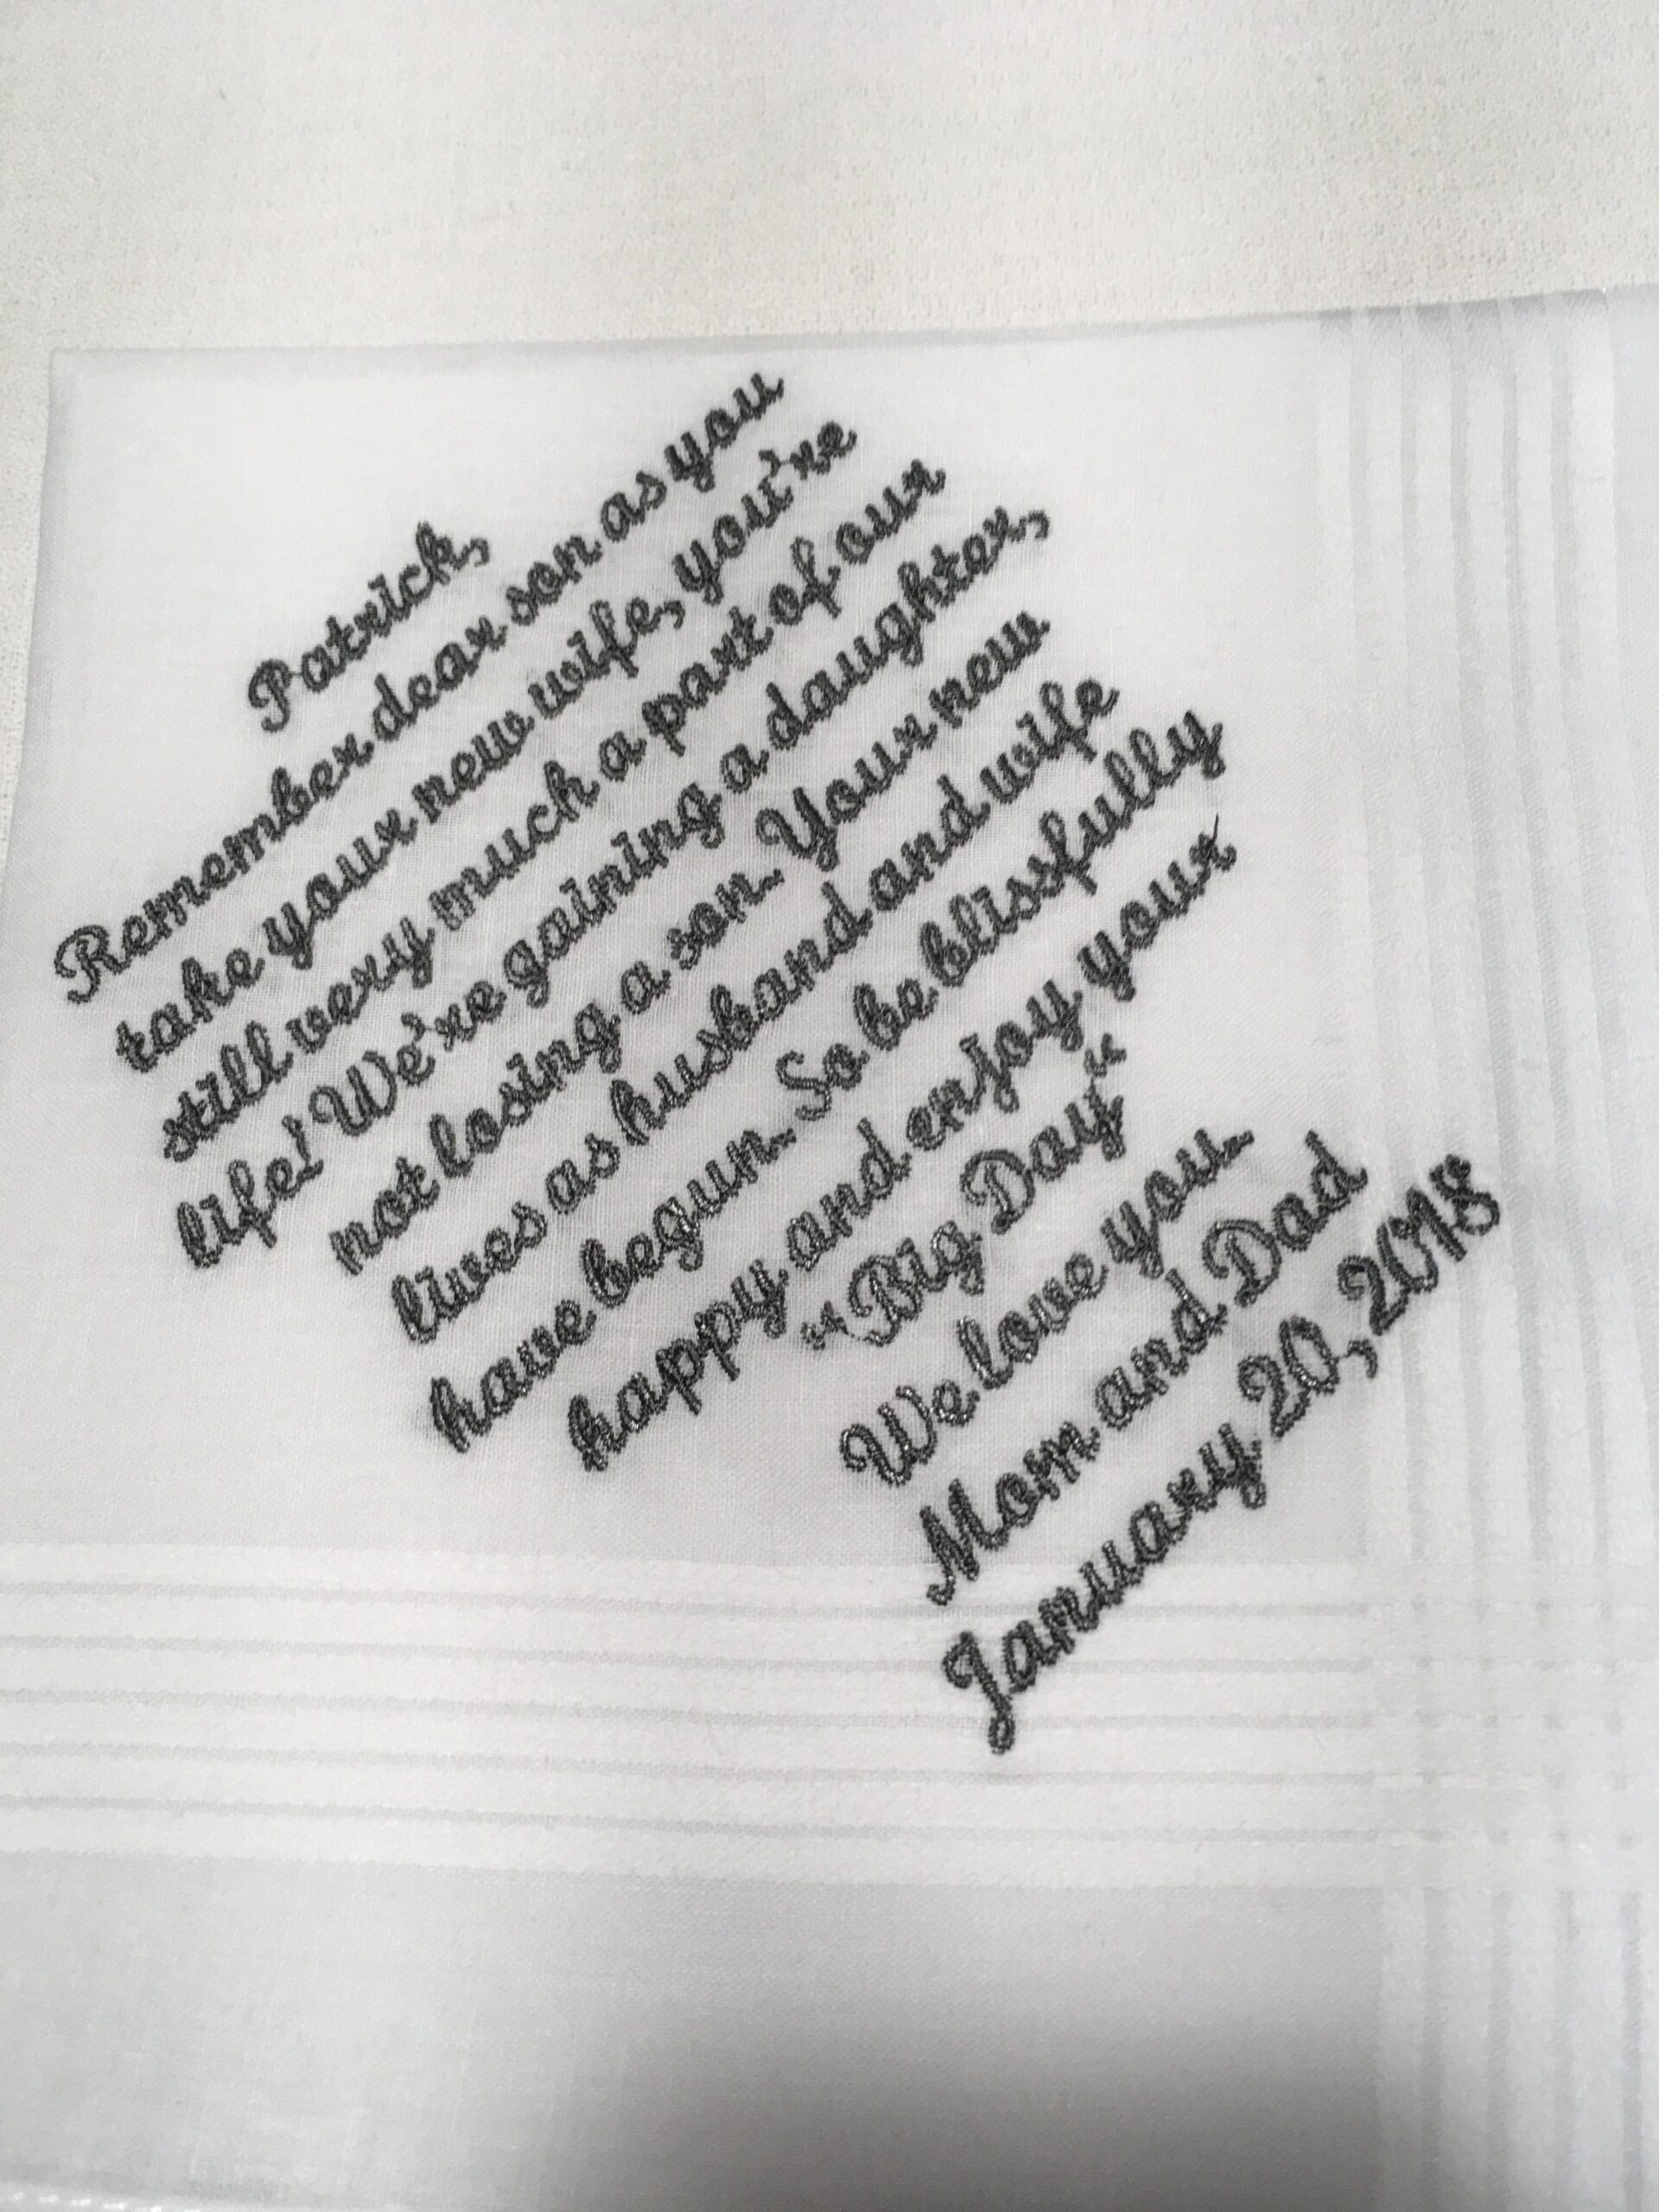 Patrick,
Remember dear son as you
take your new wife, you're
still very much a part of our
life! We're gaining a daughter,
not losing a son. Your new
lives as husband and wife
have begun. So be blissfully
happy and enjoy your
"Big Day"
We love you.
Mom and Dad
January 20, 2018